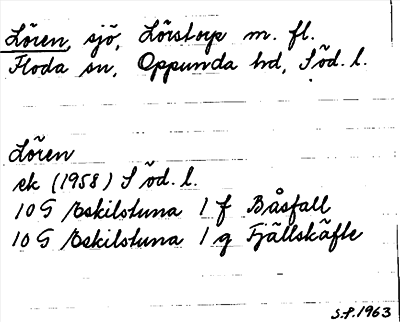 Lören, sjö, Lörstorp m. fl.
Floda sn, Oppunda hd, Söd. l.
Lören
ek (1958) Söd. l.
10 G Eskilstuna 1 f Båsfall
10 G Eskilstuna 1 g Fjällskäfte
S.P. 1963